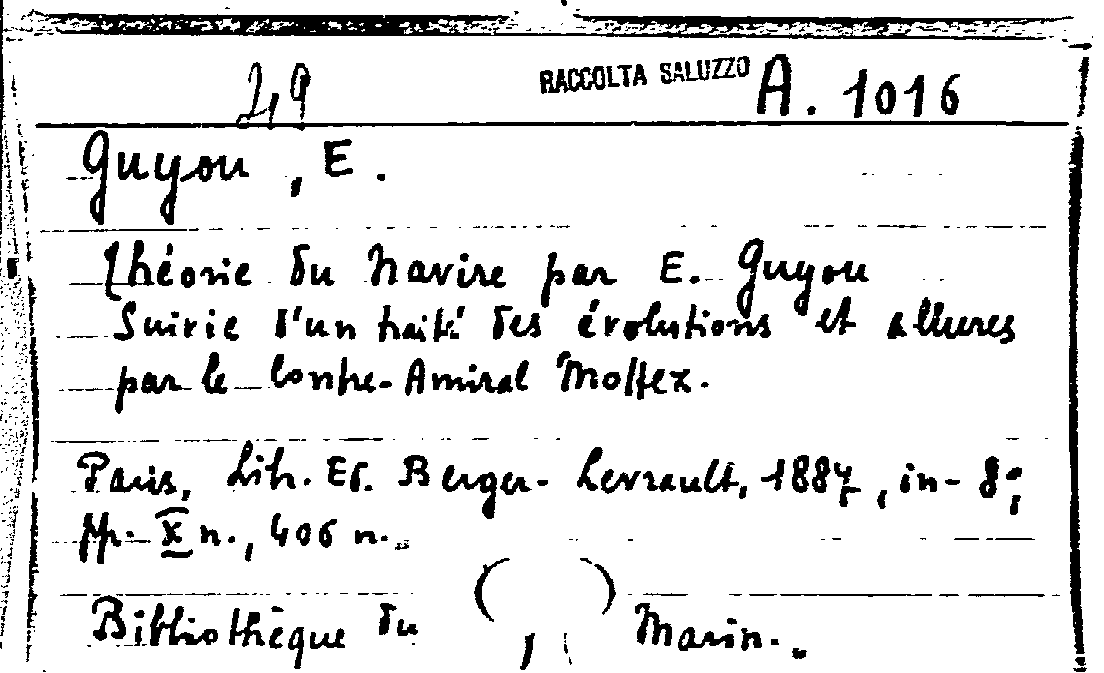 249 RACCOLTA SALUZZO A. 1016
Guyou, E.
Théorie du Navire par E. Guyou
Suivie d'un traité des évolutions et allures
par le Contre-Amiral Mottez.
Paris, Lib. Ed. Berger-Levrault, 1887, in-8°;
pp. X n., 406 n..
Bibliothèque du ( , ) Marin..